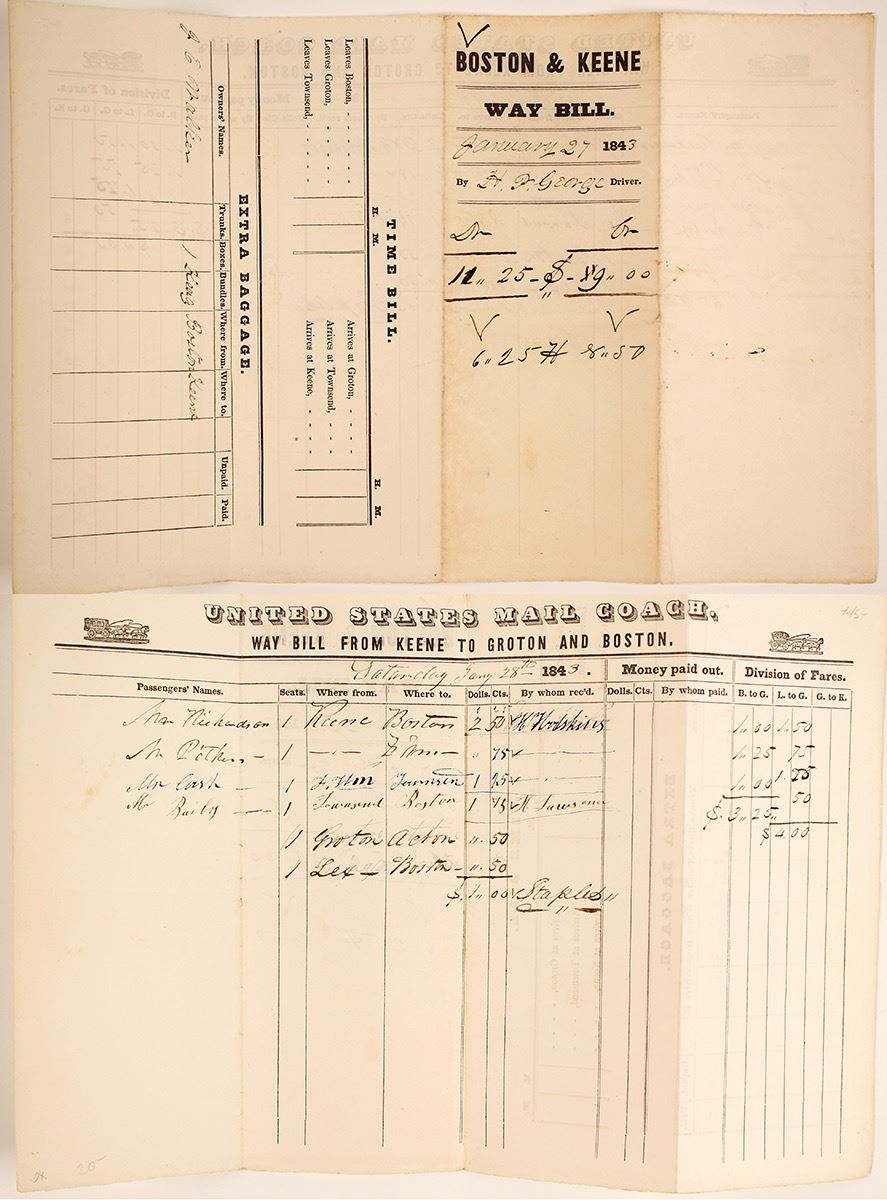 BOSTON & KEENE
WAY BILL.
January 27 1843
By H. P. George Driver.
Dr Cr
11,, 25 - $ - 19,, 00
6,, 25 8,, 50
TIME BILL.
H. M. H. M.
Leaves Boston, - - - - - Arrives at Groton, - - - -
Leaves Groton, - - - - - Arrives at Townsend, - - - -
Leaves Townsend, - - - - - Arrives at Keene, - - - -
EXTRA BAGGAGE.
Owners' Names. Trunks. Boxes. Bundles. Where from. Where to. Unpaid. Paid.
Walker 1 Boston Keene
UNITED STATES MAIL COACH.
WAY BILL FROM KEENE TO GROTON AND BOSTON.
Saturday Jany 28th 1843. Money paid out. Division of Fares.
Passengers' Names. Seats. Where from. Where to. Dolls. Cts. By whom rec'd. Dolls. Cts. By whom paid. B. to G. L. to G. G. to K.
Mr Richardson 1 Keene Boston 2 50 1,, 00 1,, 50
Mr 1 - " - " 75 1,, 25 75
Mr Cash - 1 Townsen 1 1,, 00
Mr Baily - 1 Townsend Boston 1 75 50
$. 3,, 25,,
1 Groton Acton ,, 50 $ 4 00
1 Lex - Boston - ,, 50
$. 1,, 00 Staples ,,